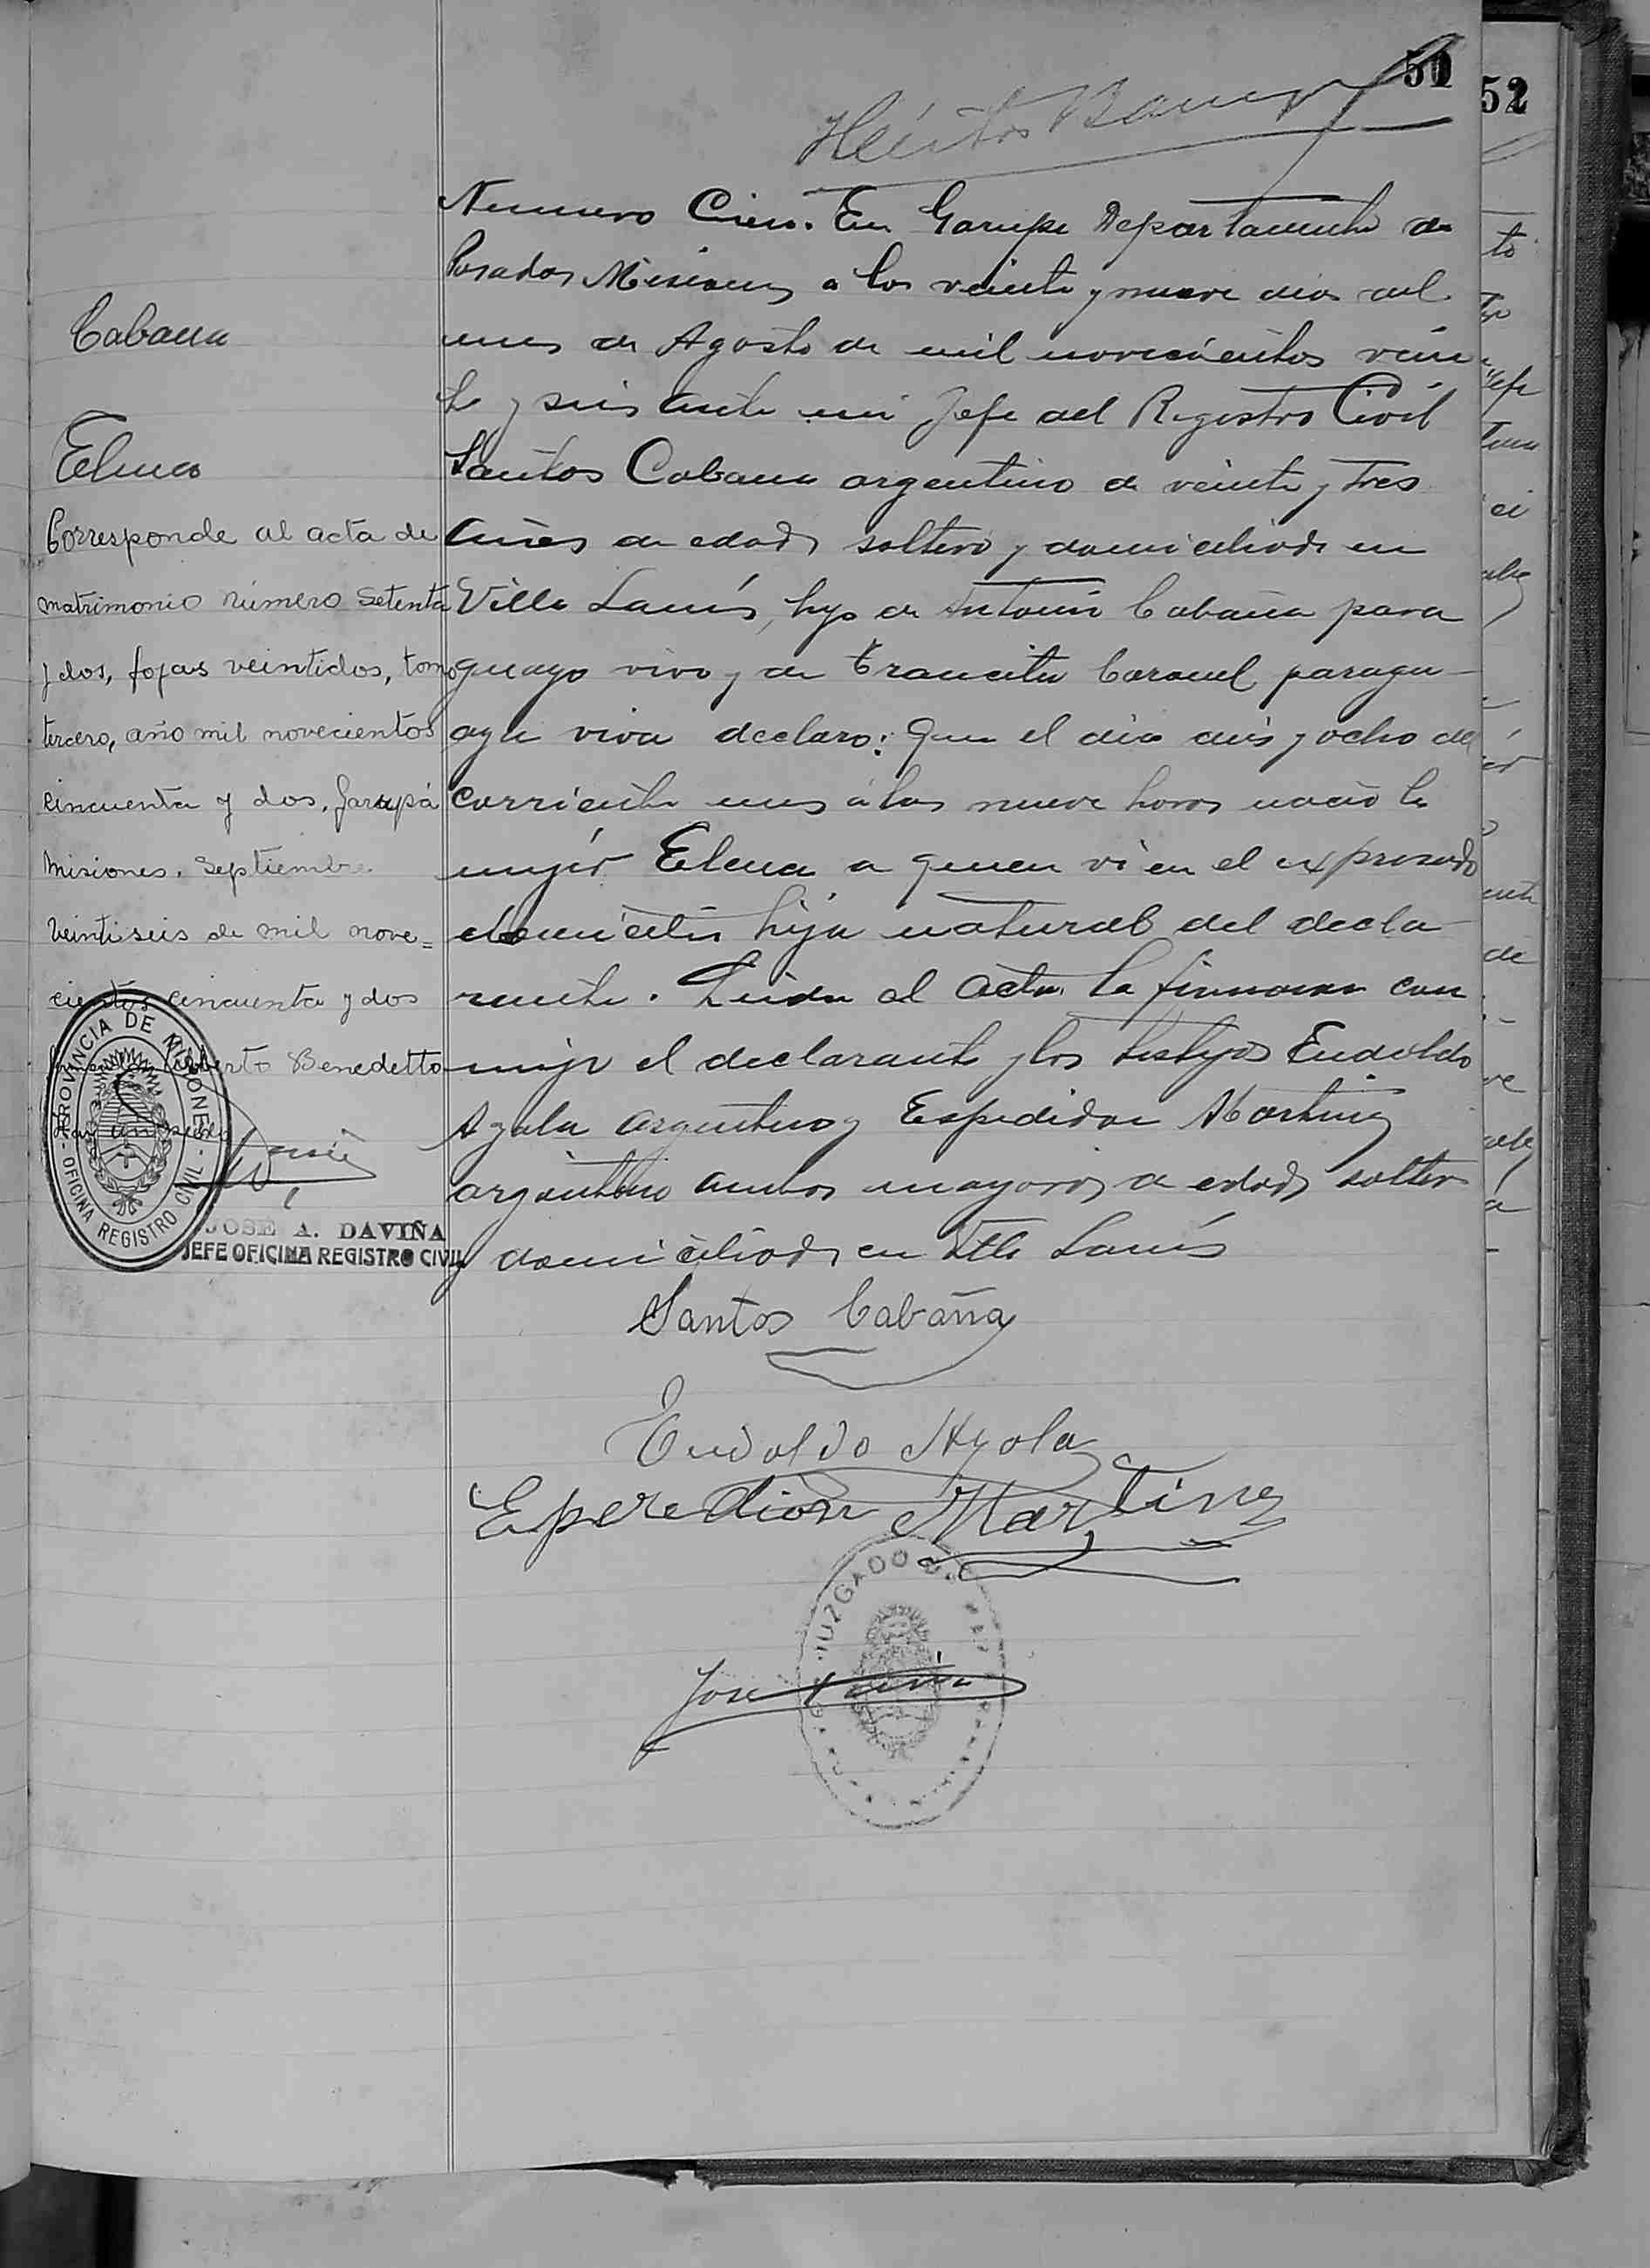 51
52
Héctor
Numero Cien. En Garupa Departamento de
Posadas Misiones a los veinte y nueve dias del
mes de Agosto de mil novecientos vein
te y seis ante mi Jefe del Registro Civil
Santos Cabaña argentino de veinte y tres
años de edad soltero y domiciliado en
Villa Lanús, hijo de Antonio Cabaña para
guayo vivo y de Trancita Coronel paragu
aya viva declaro: Que el dia dies y ocho del
corriente mes a las nueve horas nacio la
mujer Elena a quien vi en el expresado
domicilio hija natural del decla
rante. Leida el acta la firmaron con
migo el declarante y los testigos Eudoldo
Ayala argentino y Espedidion Martinez
argentino ambos mayores de edad solteros
y domiciliados en Villa Lanús
Santos Cabaña
Eudoldo Ayola
Esperedion Martinez
José
JUZGADO
Cabaña
Elena
Corresponde al acta de
matrimonio número setenta
y dos, fojas veintidos, tomo
tercero, año mil novecientos
cincuenta y dos, Garupá
Misiones. Septiembre
veintiseis de mil nove=
cientos cincuenta y dos
Benedetto
PROVINCIA DE MISIONES
- OFICINA REGISTRO CIVIL -
JOSE A. DAVIÑA
JEFE OFICINA REGISTRO CIVIL